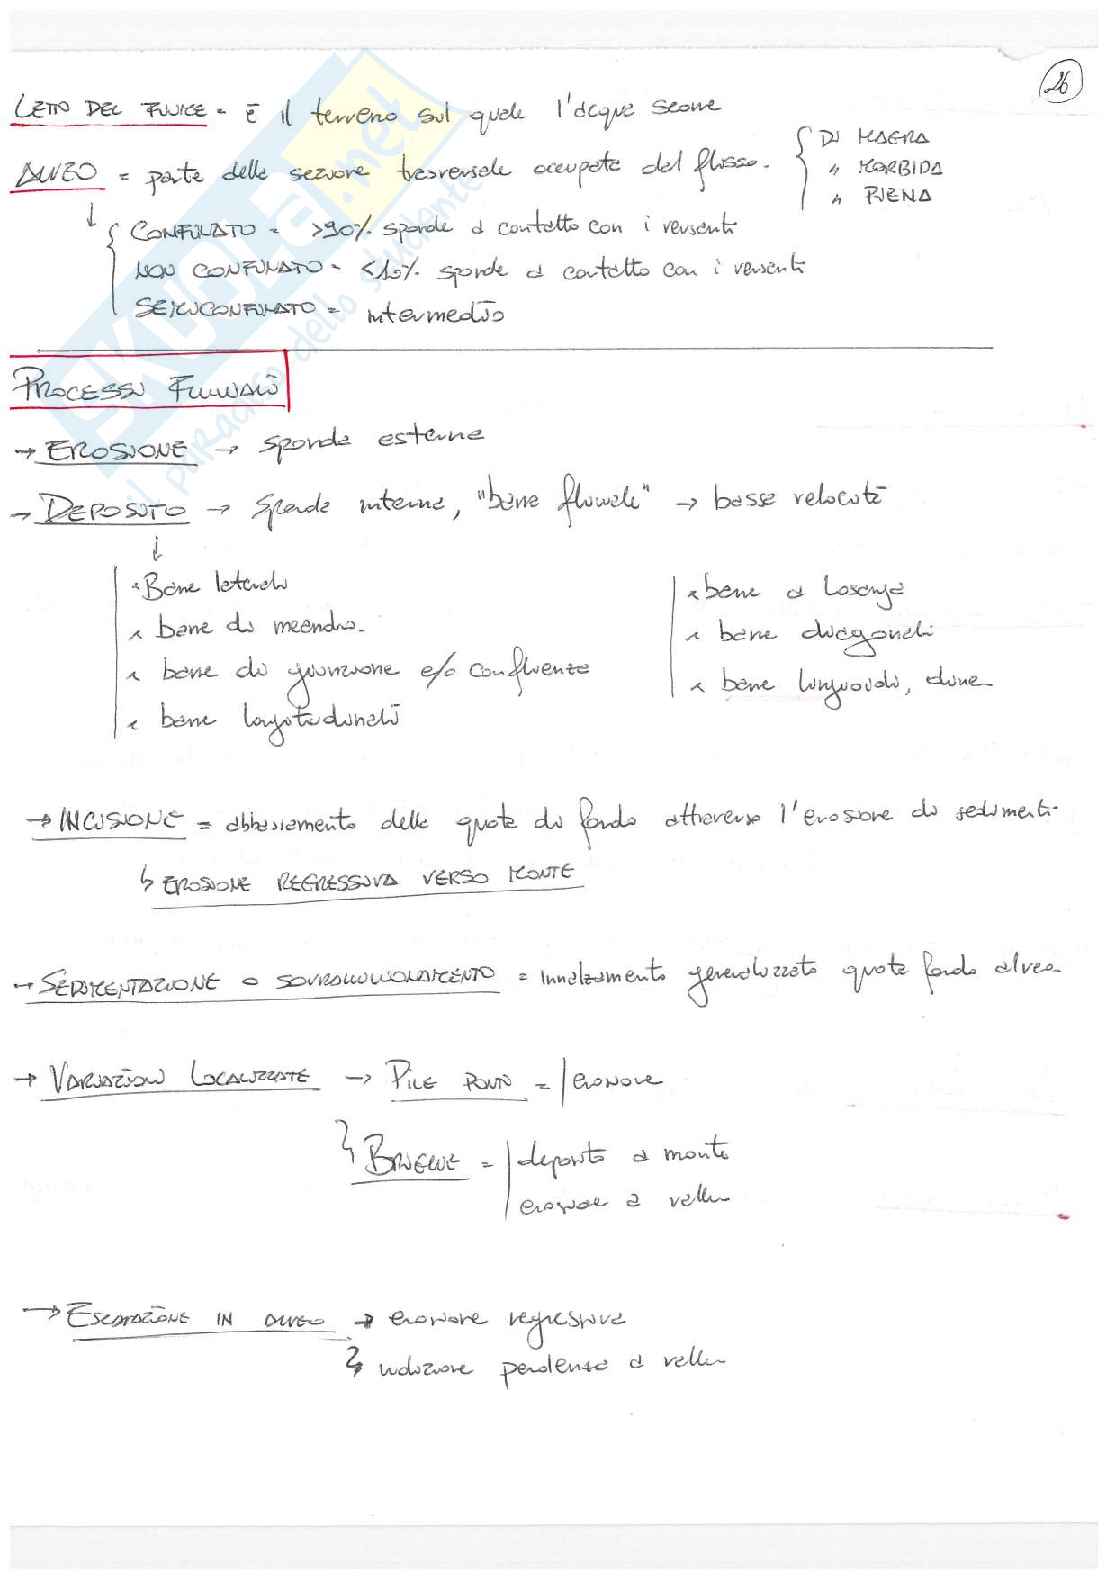 26
LETTO DEL FIUME = È il terreno sul quale l'acqua scorre
ALVEO = parte della sezione trasversale occupata dal flusso. { DI MAGRA
" MORBIDA
" PIENA
↓
{ CONFINATO = >90% sponde a contatto con i versanti
NON CONFINATO = <10% sponde a contatto con i versanti
SEMICONFINATO = intermedio
PROCESSI FLUVIALI
→ EROSIONE → sponde esterne
→ DEPOSITO → sponde interne, "barre fluviali" → basse velocità
↓
• Barre laterali
• barre di meandro
• barre di giunzione e/o confluenza
• barre longitudinali
• barre a losanga
• barre diagonali
• barre linguoidi, dune
→ INCISIONE = abbassamento delle quote di fondo attraverso l'erosione di sedimenti
↳ EROSIONE REGRESSIVA VERSO MONTE
→ SEDIMENTAZIONE O SOVRALLUVIONAMENTO = innalzamento generalizzato quote fondo alveo
→ VARIAZIONI LOCALIZZATE → PILE PONTI = | erosione
↳ BRIGLIE = | deposito a monte
erosione a valle
→ ESCAVAZIONE IN ALVEO → erosione regressiva
↳ riduzione pendenza a valle
SKUOLA.net
il paradiso dello studente